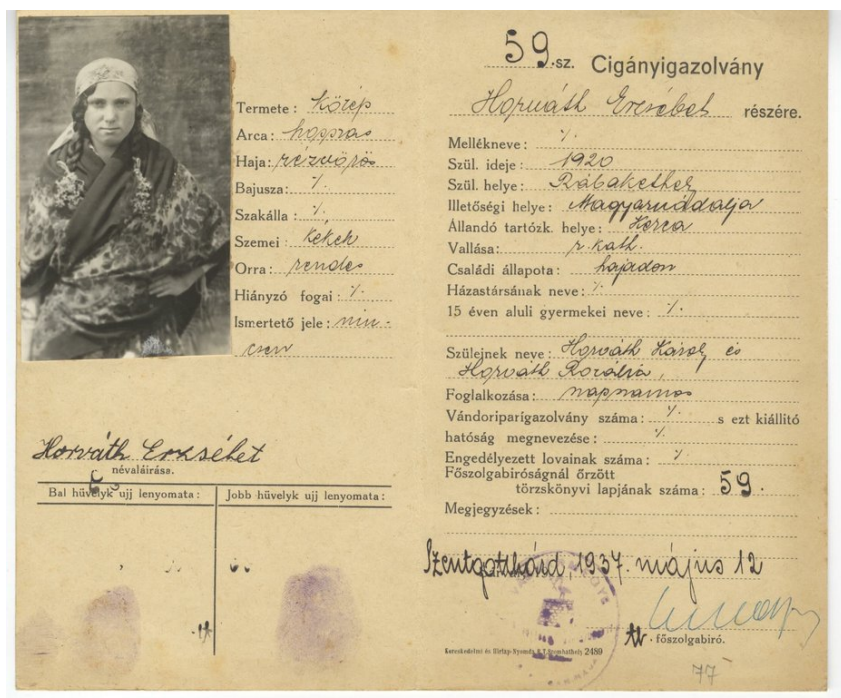 Termete: Közép
Arca: hosszas
Haja: rézvörös
Bajusza: ·/.
Szakálla: ·/.
Szemei: kékek
Orra: rendes
Hiányzó fogai: ·/.
Ismertető jele: nin-
csen
Horváth Erzsébet
névaláirása.
Bal hüvelyk ujj lenyomata: Jobb hüvelyk ujj lenyomata:
59.sz. Cigányigazolvány
Horváth Erzsébet részére.
Mellékneve: ·/.
Szül. ideje: 1920
Szül. helye: Rábakethely
Illetőségi helye: Magyarnádalja
Állandó tartózk. helye:
Vallása: r. kath.
Családi állapota: hajadon
Házastársának neve: ·/.
15 éven aluli gyermekei neve: ·/.
Szülejnek neve: Horváth Károly és
Horváth Rozália,
Foglalkozása: napszámos
Vándoriparigazolvány száma: ·/. s ezt kiállitó
hatóság megnevezése: ·/.
Engedélyezett lovainak száma: ·/.
Főszolgabiróságnál őrzött
törzskönyvi lapjának száma: 59.
Megjegyzések:
Szentgotthárd, 1937. május 12
főszolgabiró.
Kereskedelmi és Hirlap-Nyomda R.T. Szombathely 2489
77